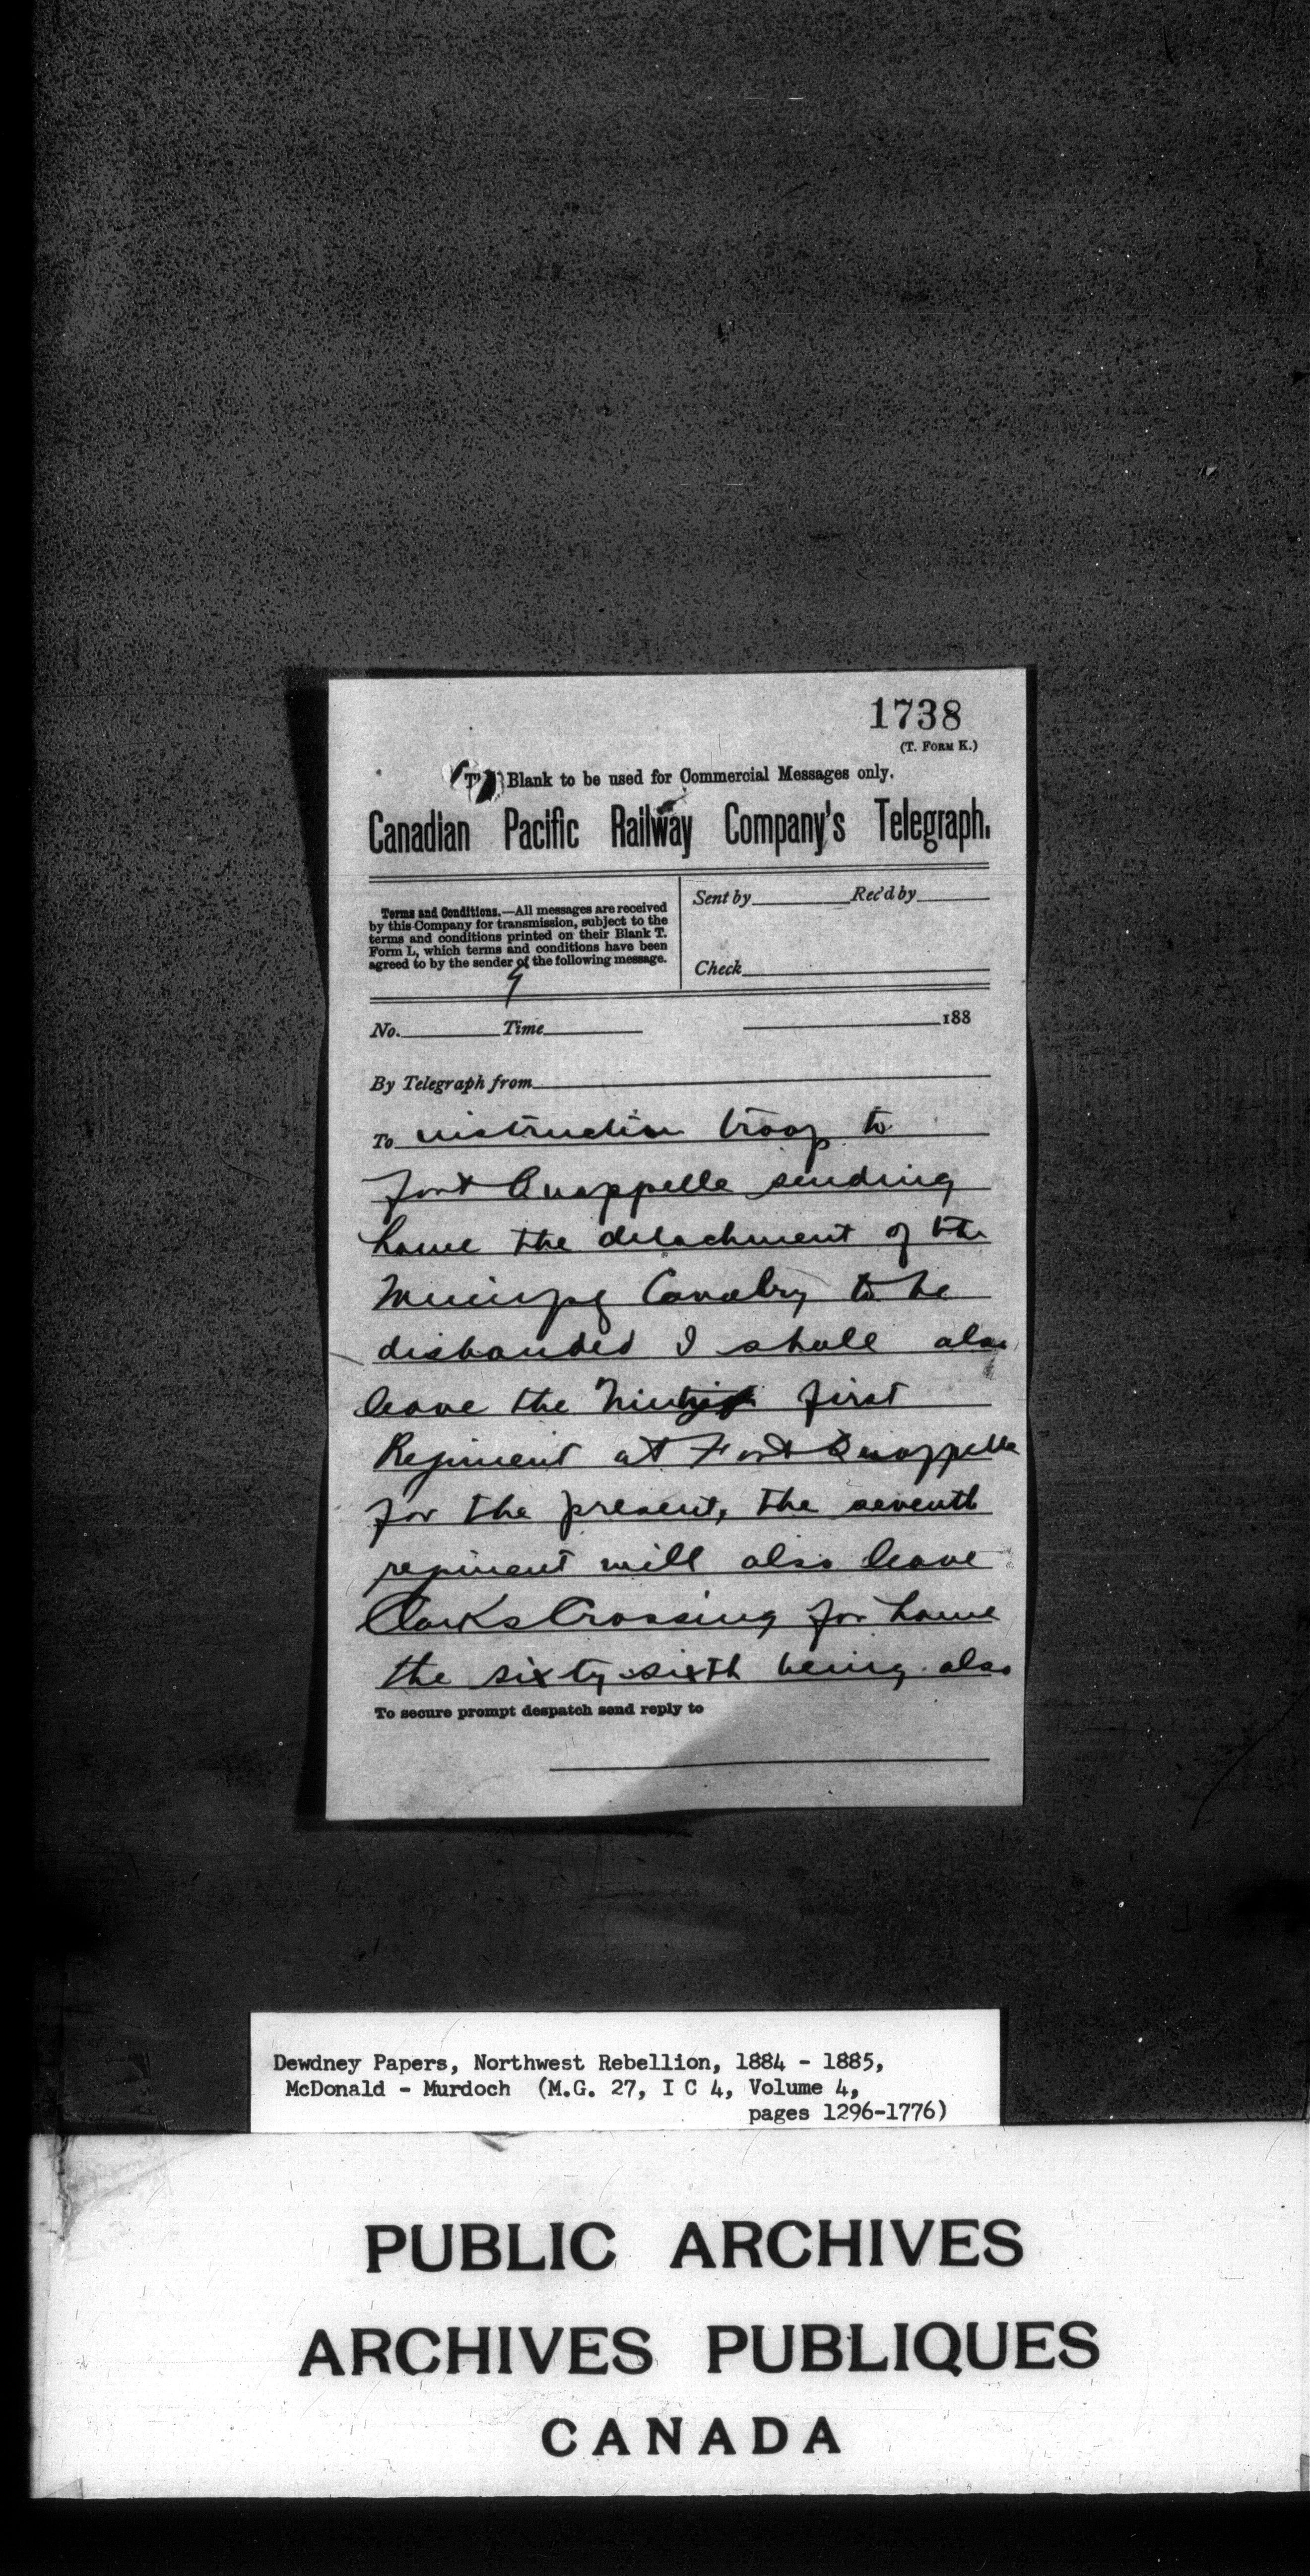 1738
(T. FORM K.)
Blank to be used for Commercial Messages only.
Canadian Pacific Railway Company's Telegraph.
Terms and Conditions.—All messages are received
by this Company for transmission, subject to the
terms and conditions printed on their Blank T.
Form L, which terms and conditions have been
agreed to by the sender of the following message.
Sent by Rec'd by
Check
No. Time 188
By Telegraph from
To instruction troop to
fort Quappelle sending
home the detachment of the
Winnipg Cavalry to be
disbanded I shall also
leave the first
Regiment at Fort Quappelle
for the present, the seventh
regiment will also leave
Clarks Crossing for home
the sixty sixth being also
To secure prompt despatch send reply to
Dewdney Papers, Northwest Rebellion, 1884 - 1885,
McDonald - Murdoch (M.G. 27, I C 4, Volume 4,
pages 1296-1776)
PUBLIC ARCHIVES
ARCHIVES PUBLIQUES
CANADA